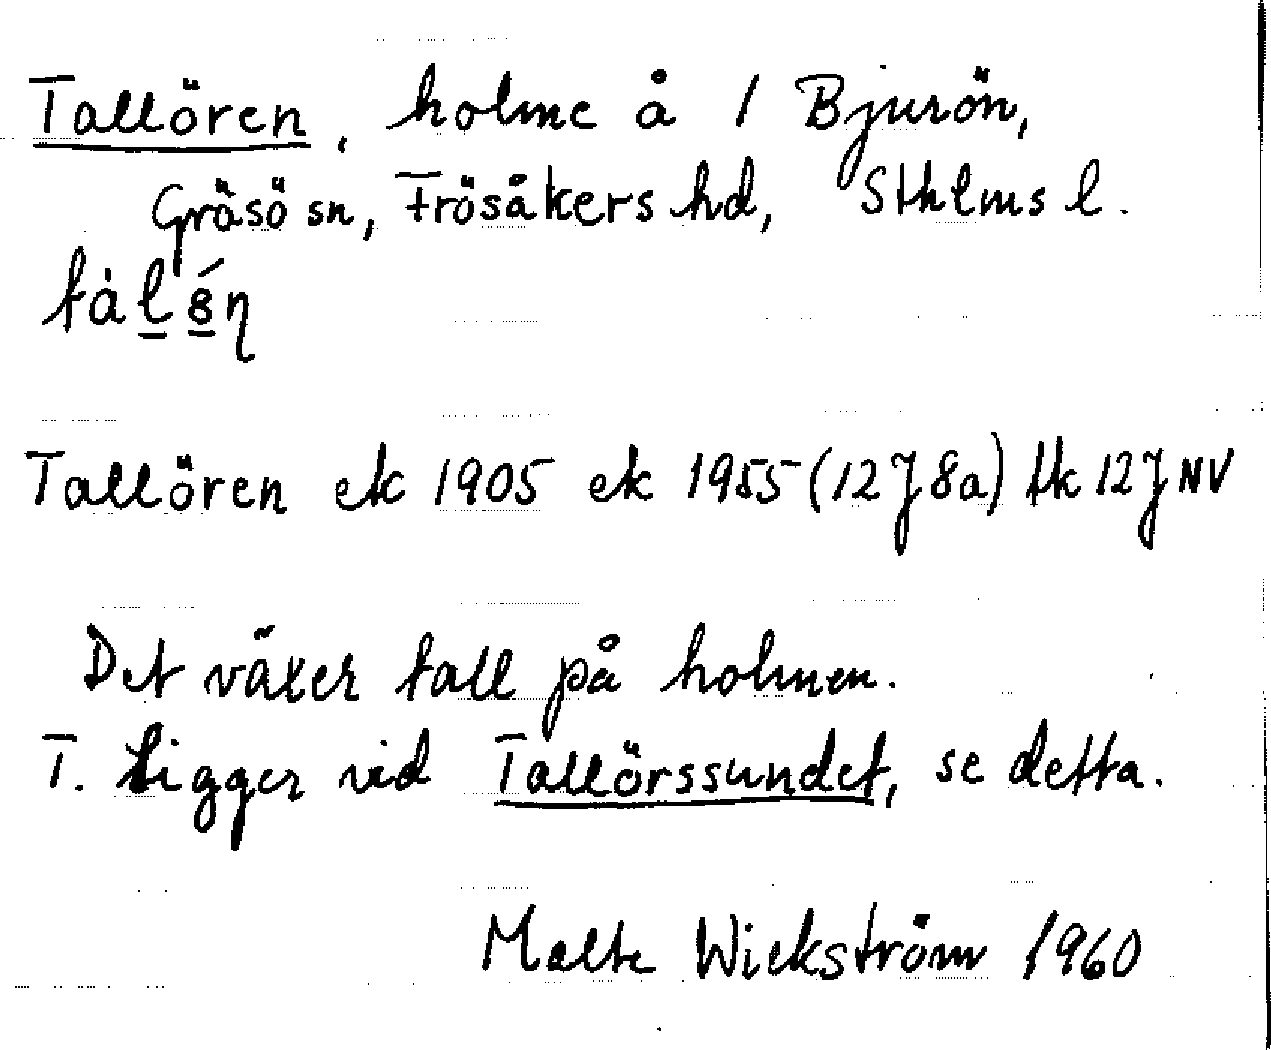 Tallören, holme å 1 Bjurön,
Gräsö sn, Frösåkers hd, Sthlms l.
Tallören ek 1905 ek 1955 (12J8a) tk 12J NV
Det växer tall på holmen.
T. ligger vid Tallörssundet, se detta.
Malte Wickström 1960